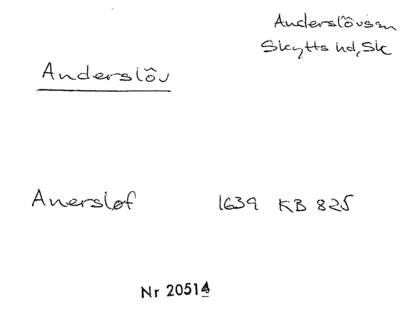 Anderslövs sn
Skytts hd, Sk
Anderslöv
Anersløf 1639 KB 825
Nr 20514